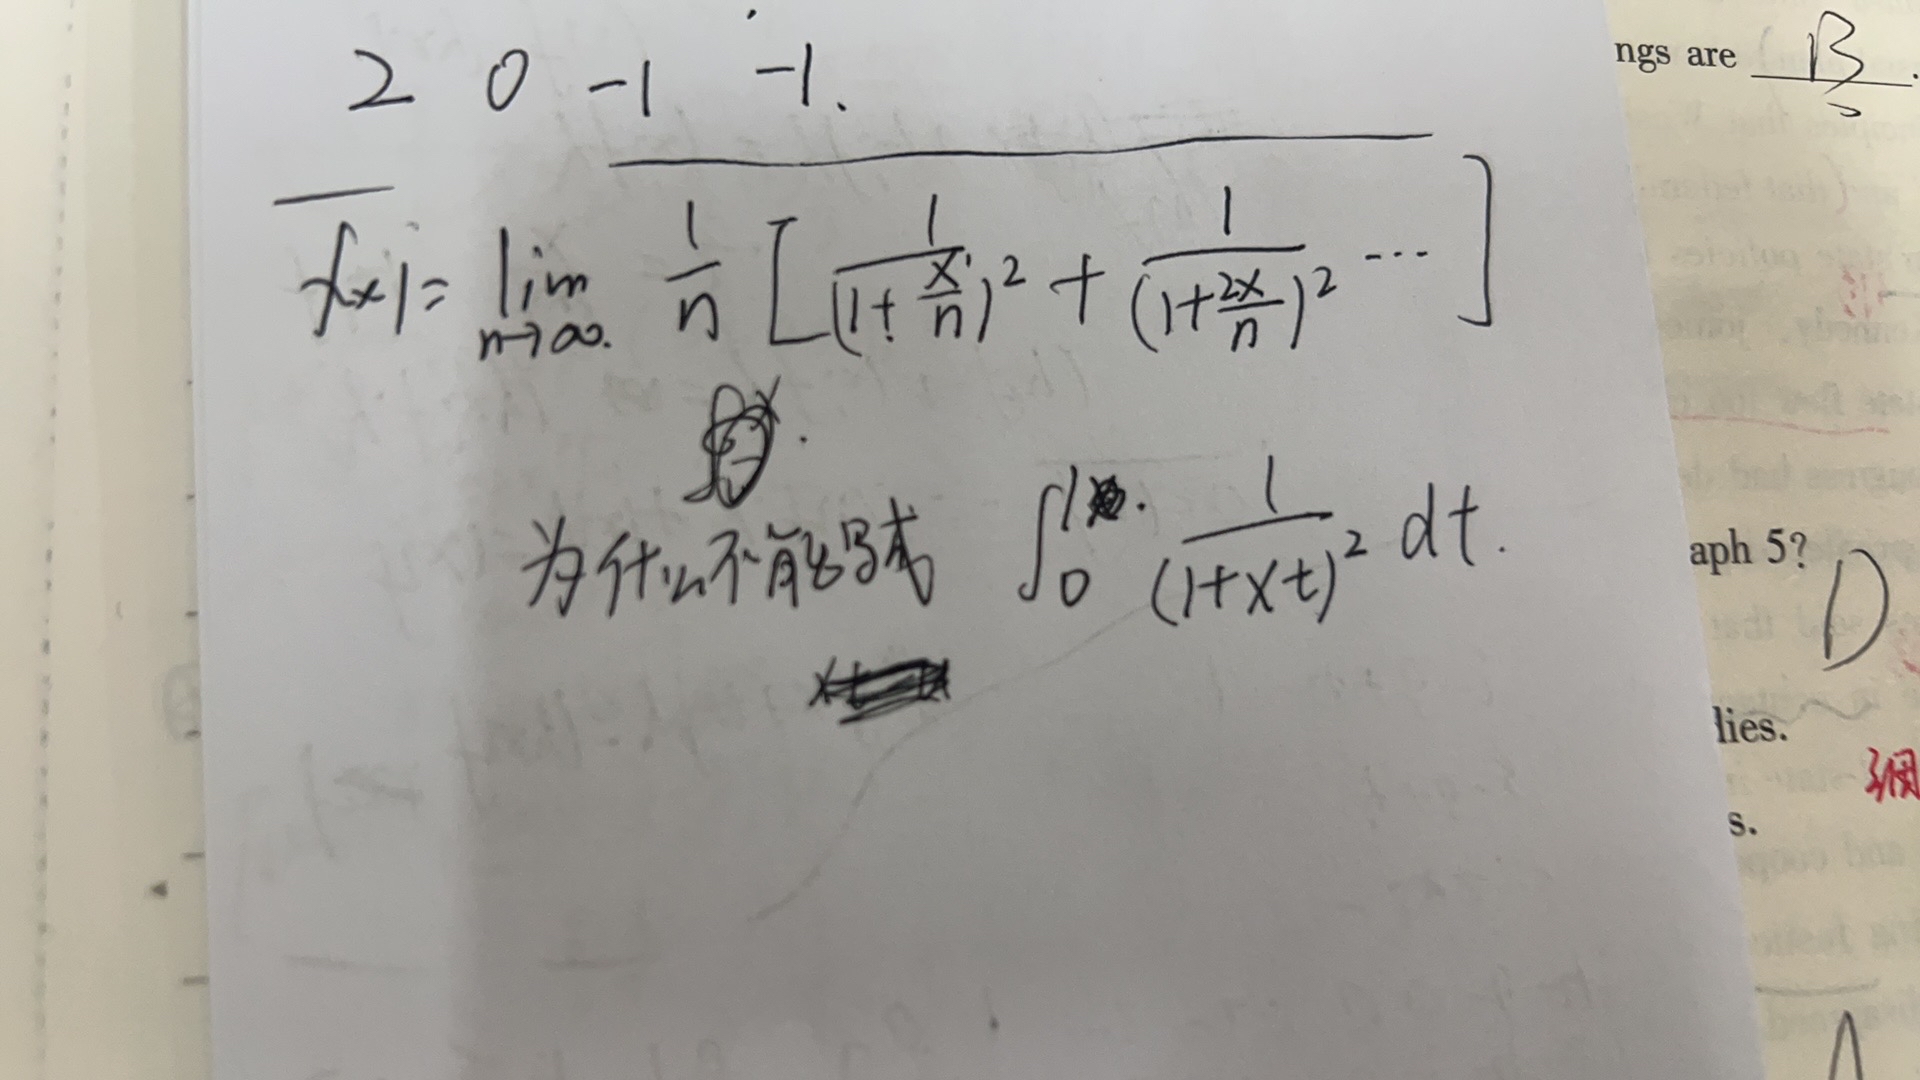 2 0 -1 -1.
f(x)= lim n→∞. 1/n [ 1/(1+x/n)² + 1/(1+2x/n)² ... ]
为什么不能写成 ∫₀¹ 1/(1+xt)² dt.
ngs are B.
aph 5?
D
lies.
s.